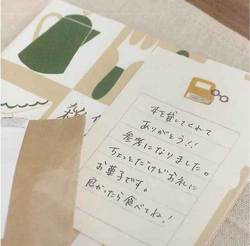 本を貸してくれて
ありがとう!!
参考になりました。
ちょっとだけどお礼に
お菓子です。
良かったら食べてね!